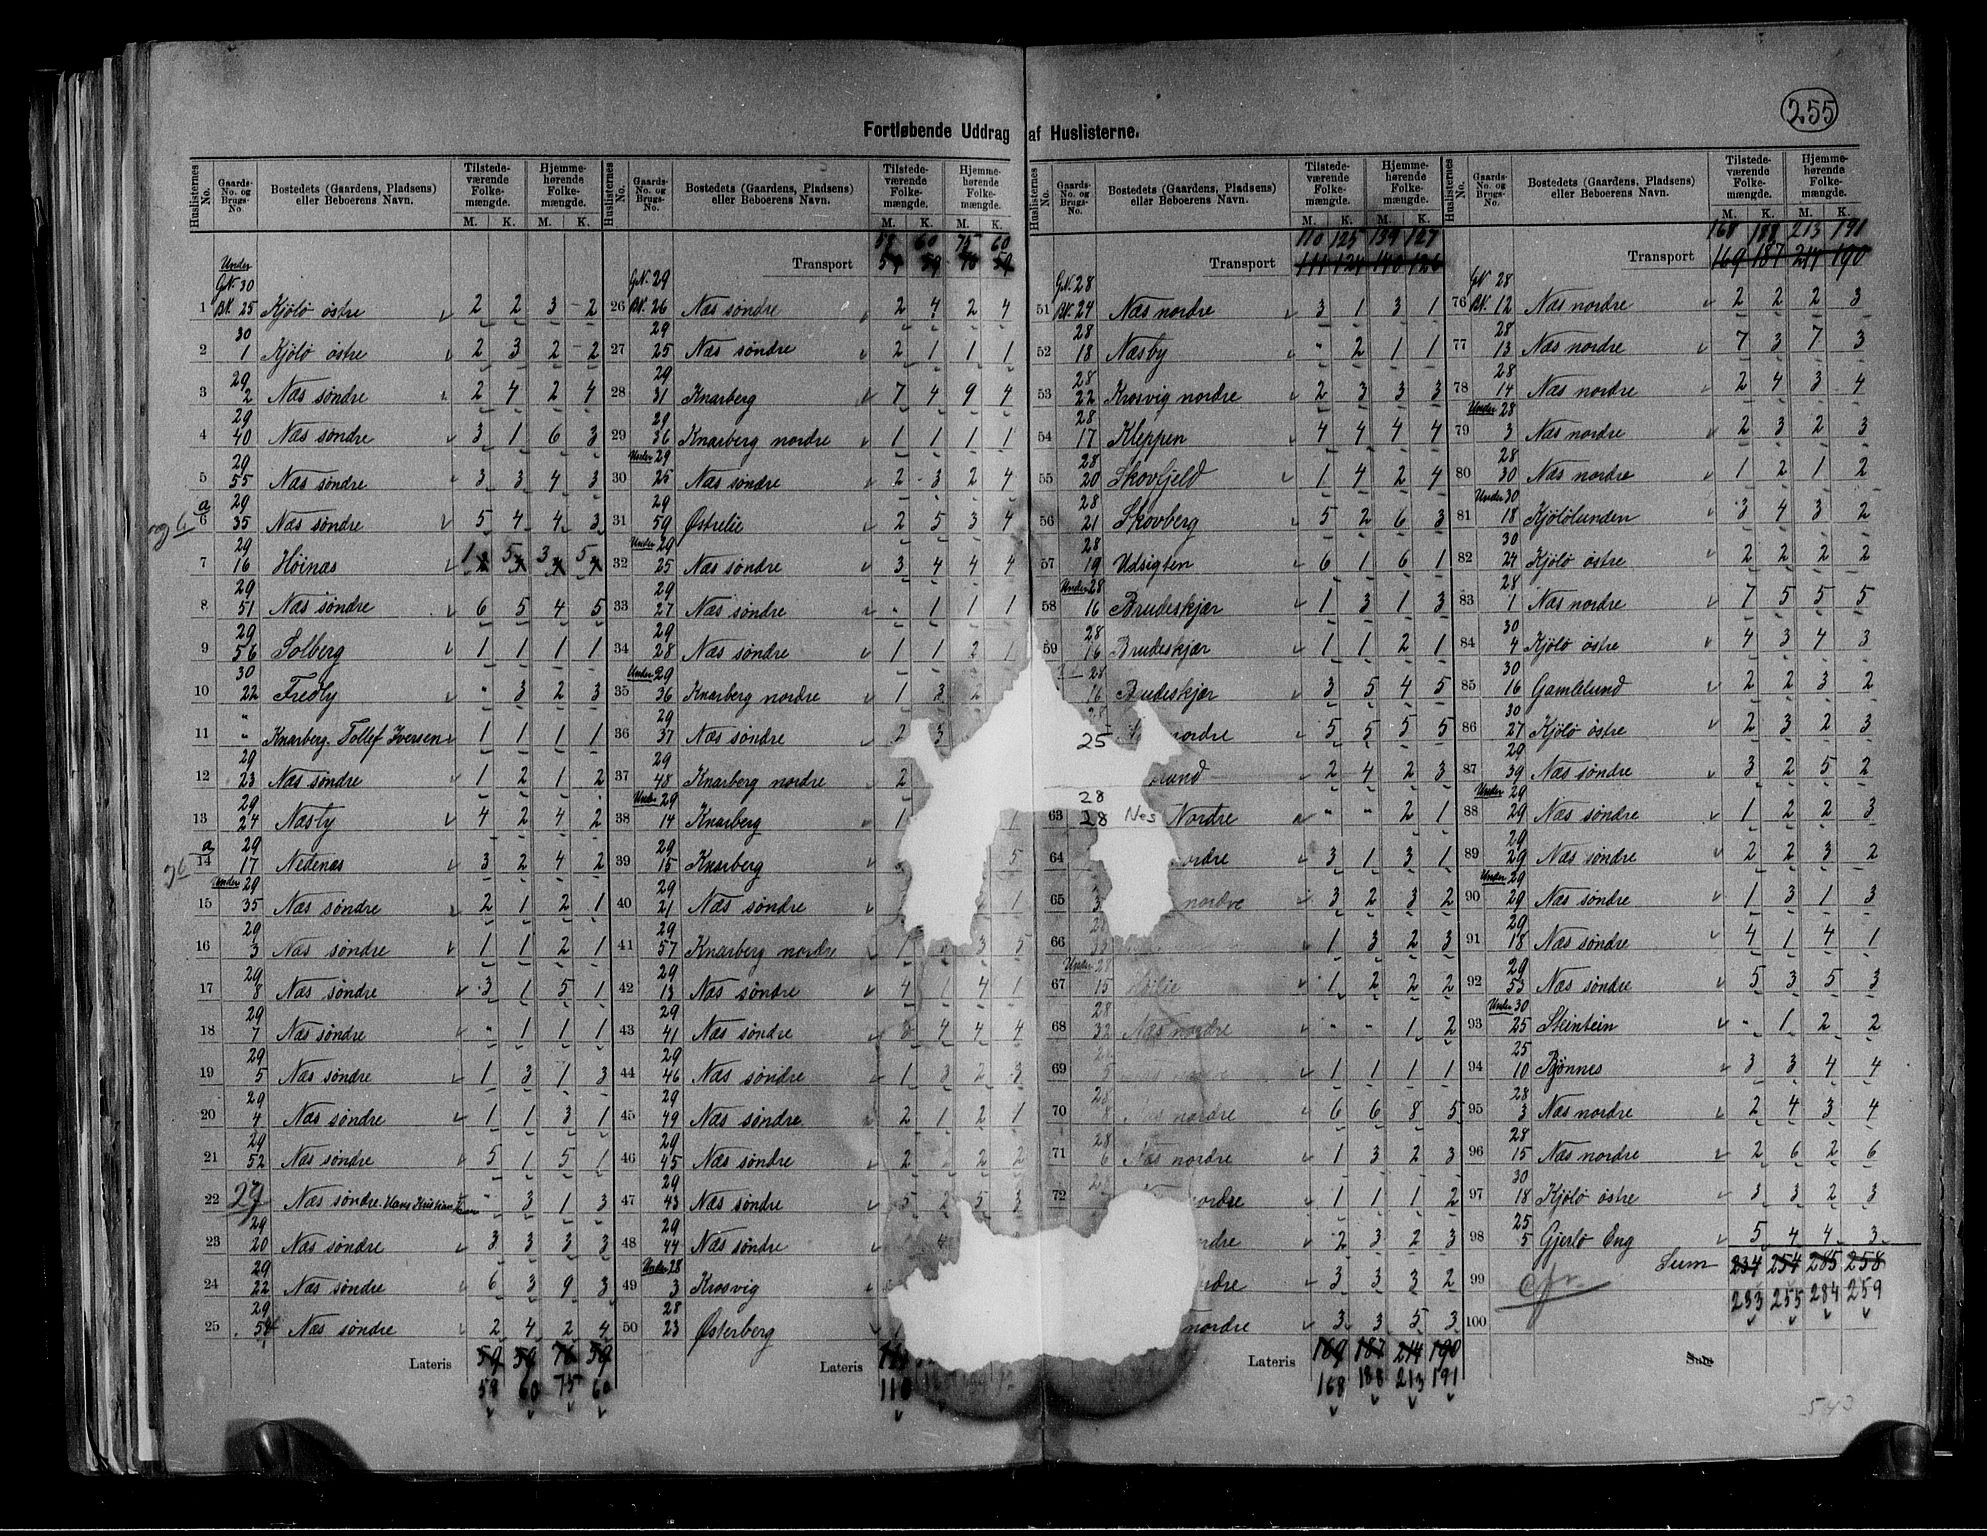 255
Fortløbende Uddrag af Huslisterne.
Huslisternes No. | Gaards-No. og Brugs-No. | Bostedets (Gaardens, Pladsens) eller Beboerens Navn. | Tilstedeværende Folkemængde. M. K. | Hjemmehørende Folkemængde. M. K.
1 Under GN. 30 BN. 25 Kjölö östre 2 2 3 2
2 30 1 Kjölö østre 2 3 2 2
3 29 2 Næs søndre 2 4 2 4
4 29 40 Næs søndre 3 1 6 3
5 29 55 Næs søndre 3 3 4 3
og b
a 6 29 35 Næs søndre 5 4 4 3
7 29 16 Höinæs 1 5 3 5
8 29 51 Næs søndre 6 5 4 5
9 29 56 Solberg 1 1 1 1
10 30 22 Fredly " 3 2 3
11 " Knarberg. Tollef Iversen 1 1 1 1
12 29 23 Næs søndre 1 2 1 2
13 29 24 Næsby 4 2 4 2
a 14 29 17 Nedenæs 3 2 4 2
15 Under 29 35 Næs søndre 2 1 2 1
16 29 3 Næs søndre 1 1 2 1
17 29 8 Næs søndre 3 1 5 1
18 29 7 Næs søndre " 1 1 1
19 29 5 Næs søndre 1 3 1 3
20 29 4 Næs søndre 1 1 3 1
21 29 52 Næs søndre 5 1 5 1
22 29 Næs søndre. Hans Kristian " 3 1 3
23 29 20 Næs søndre 3 3 3 3
24 29 22 Næs søndre 6 3 9 3
25 29 54 Næs søndre 2 4 2 4
Lateris 59 59 76 59
58 60 75 60
58 60 75 60
Transport 59 59 76 59
26 GN. 29 BN. 26 Næs søndre 2 4 2 4
27 29 25 Næs søndre 2 1 1 1
28 29 31 Knarberg 7 4 9 4
29 29 36 Knarberg nordre 1 1 1 1
30 Under 29 25 Næs søndre 2 3 2 4
31 29 59 Østrelie 2 5 3 4
32 Under 29 25 Næs søndre 3 4 4 4
33 29 27 Næs søndre " 1 1 1
34 29 28 Næs søndre 1 1 2 1
35 Under 29 36 Knarberg nordre 1 3 2
36 29 37 Næs søndre 2 3
37 29 48 Knarberg nordre 2
38 Under 29 14 Knarberg 1 1
39 29 15 Knarberg 5
40 29 21 Næs søndre 1
41 29 57 Knarberg nordre 1 3 5
42 29 13 Næs søndre 4 1 4 1
43 29 41 Næs søndre 3 4 4 4
44 29 46 Næs søndre 1 3 2 3
45 29 49 Næs søndre 2 1 2 1
46 29 45 Næs søndre 2 2 2
47 29 43 Næs søndre 5 2 5 3
48 29 44 Næs søndre 4
49 Under 28 3 Krosvig
50 28 23 Østerberg
Lateris 111
110
110 125 139 127
Transport 111 124 140 126
51 GN. 28 BN. 24 Næs nordre 3 1 3 1
52 28 18 Næsby " 2 1 1
53 28 22 Krosvig nordre 2 3 3 3
54 28 17 Kleppen 4 4 4 4
55 28 20 Skovfjeld 1 4 2 4
56 28 21 Skovberg 5 2 6 3
57 28 19 Udsigten 6 1 6 1
58 Under 28 16 Brudeskjær 1 3 1 3
59 28 16 Brudeskjær 1 1 2 1
28 16 Brudeskjær 3 5 4 5
28 25 nordre 5 5 5 5
lund 2 4 2 3
63 28 28 Nes Nordre " " 2 1
64 ordre 3 1 3 1
65 3 nordre 3 2 3 2
66 33 1 3 2 3
67 Under 28 15 Høilie 1 2 2 2
68 28 32 Næs nordre " " 1 2
69 5 1 1 1 1
70 28 8 Næs nordre 6 6 8 5
71 28 6 Næs nordre 1 3 2 3
72 ordre 1 1 1 2
ordre 2 3 2 3
ordre 3 3 3 2
nordre 3 3 5 3
Lateris 169 187 214 190
168 188 213 191
168 188 213 191
Transport 169 187 214 190
76 GN. 28 BN. 12 Næs nordre 2 2 2 3
77 28 13 Næs nordre 7 3 7 3
78 28 14 Næs nordre 2 4 3 4
79 Under 28 3 Næs nordre 2 3 2 3
80 28 30 Næs nordre 1 2 1 2
81 Under 30 18 Kjölölunden 3 4 3 2
82 30 24 Kjölö östre 2 2 2 2
83 28 1 Næs nordre 7 5 5 5
84 30 4 Kjölö østre 4 3 4 3
85 30 16 Gamlelund 2 2 3 2
86 30 27 Kjölö østre 2 3 2 3
87 29 39 Næs søndre 3 2 5 2
88 Under 29 29 Næs søndre 1 2 2 3
89 29 29 Næs søndre 2 2 3 2
90 Under 29 29 Næs søndre 1 3 1 3
91 29 18 Næs søndre 4 1 4 1
92 29 53 Næs søndre 5 3 5 3
93 Under 30 25 Steintein " 1 2 2
94 25 10 Bjønnes 3 3 4 4
95 28 3 Næs nordre 2 4 3 4
96 28 15 Næs nordre 2 6 2 6
97 30 18 Kjölö østre 3 3 2 3
98 25 5 Gjerlö Eng 5 4 4 3
99 Sum 234 254 285 258
cfr. 233 255 284 259
100
Sum
543